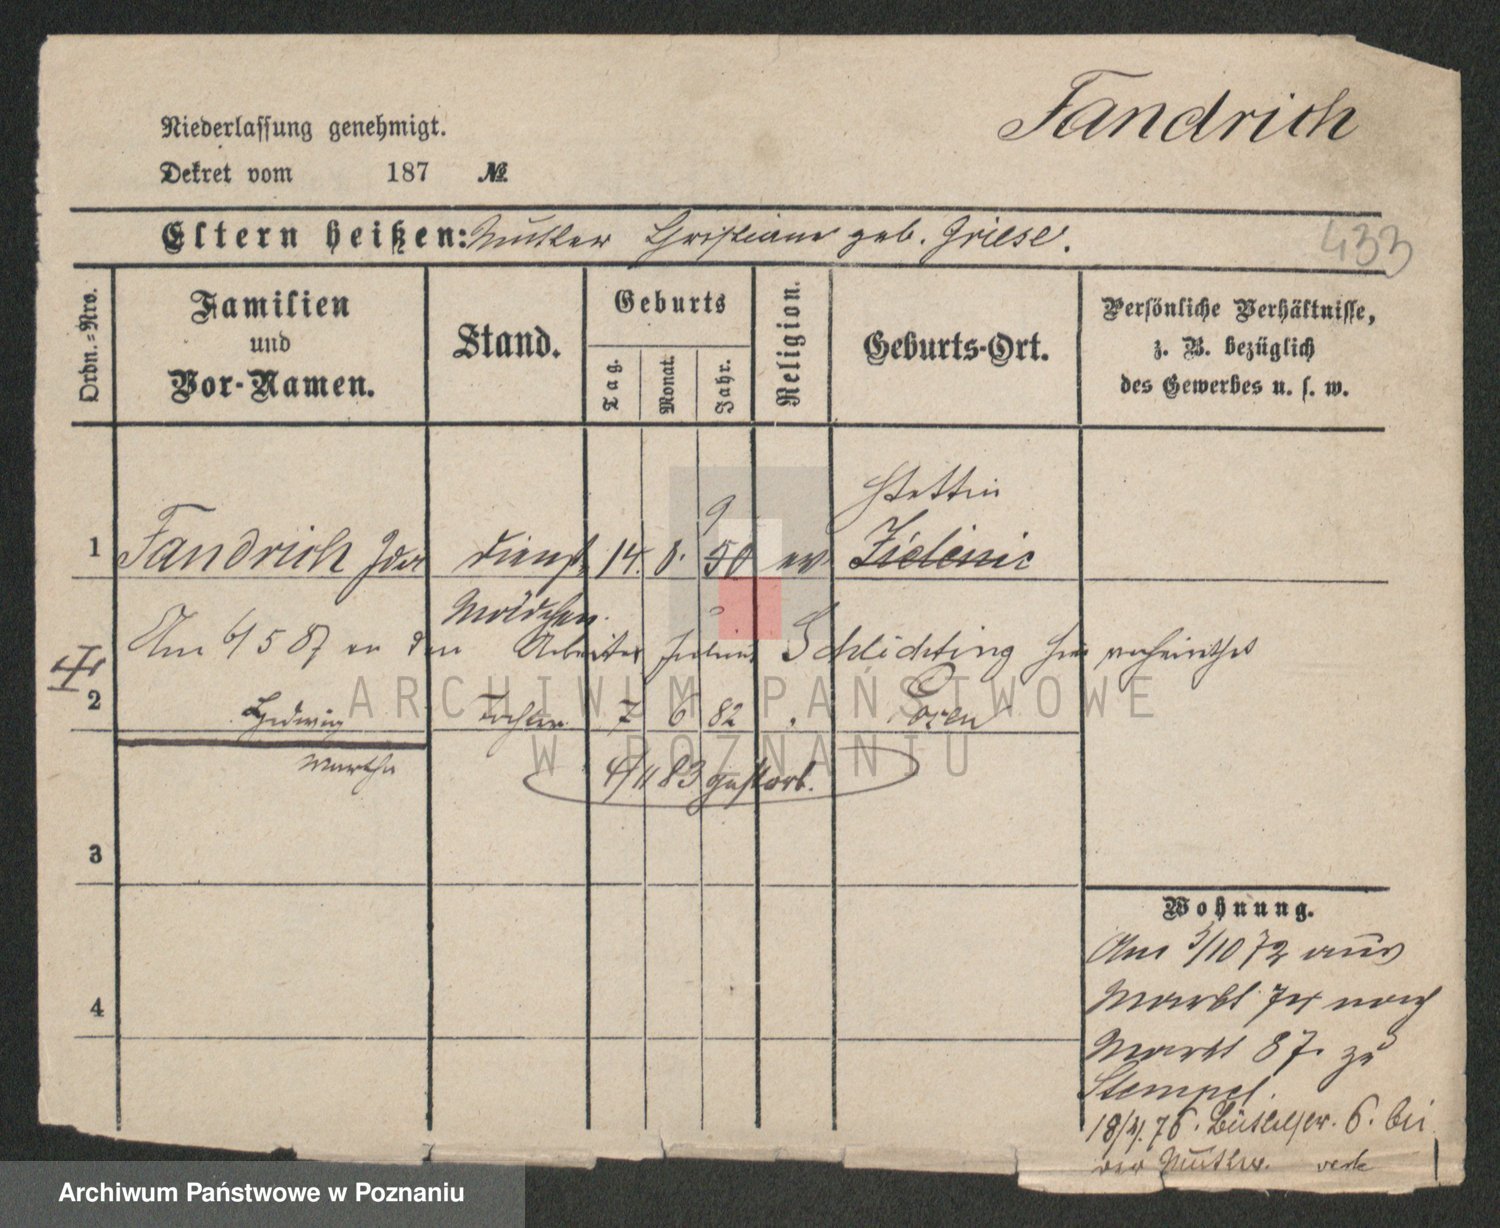 Fandrich
Niederlassung genehmigt.
Dekret vom 187 №
Eltern heißen: Mutter Christiane geb. Griese.
433
Ordn.=Nro.
Familien
und
Vor-Namen.
Stand.
Geburts
Tag.
Monat.
Jahr.
Religion.
Geburts-Ort.
Persönliche Verhältnisse,
z. B. bezüglich
des Gewerbes u. s. w.
9 Stettin
1 Fandrich Ida Dienst 14. 8. 50 ev Zielinic
Mädchen.
Am 6/5 87 an den Arbeiter Julius Schlichting hier verheirathet
2 Hedwig Tochter 7 6 82 Posen
Martha
4/11 83 gestorb.
3
4
Wohnung.
Am 3/10 72 aus
Markt 74 nach
Markt 87. zu
Stempel.
18/4. 76. 6. bei
der Mutter.
ARCHIWUM PAŃSTWOWE
W POZNANIU
Archiwum Państwowe w Poznaniu